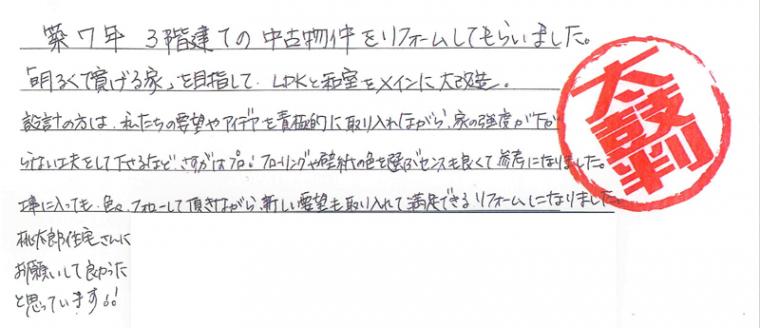 築7年 3階建ての中古物件をリフォームしてもらいました。
「明るくて寛げる家」を目指して、LDKと和室をメインに大改造。
設計の方は、私たちの要望やアイデアを積極的に取り入れながら、家の強度が下が
らない工夫をして下さるなど、さすがはプロ！フローリングや壁紙の色を選ぶセンスも良くて参考になりました。
工事に入っても、色々フォローして頂きながら、新しい要望も取り入れて満足できるリフォームになりました。
桃太郎住宅さんに
お願いして良かった
と思っています！！
太鼓判